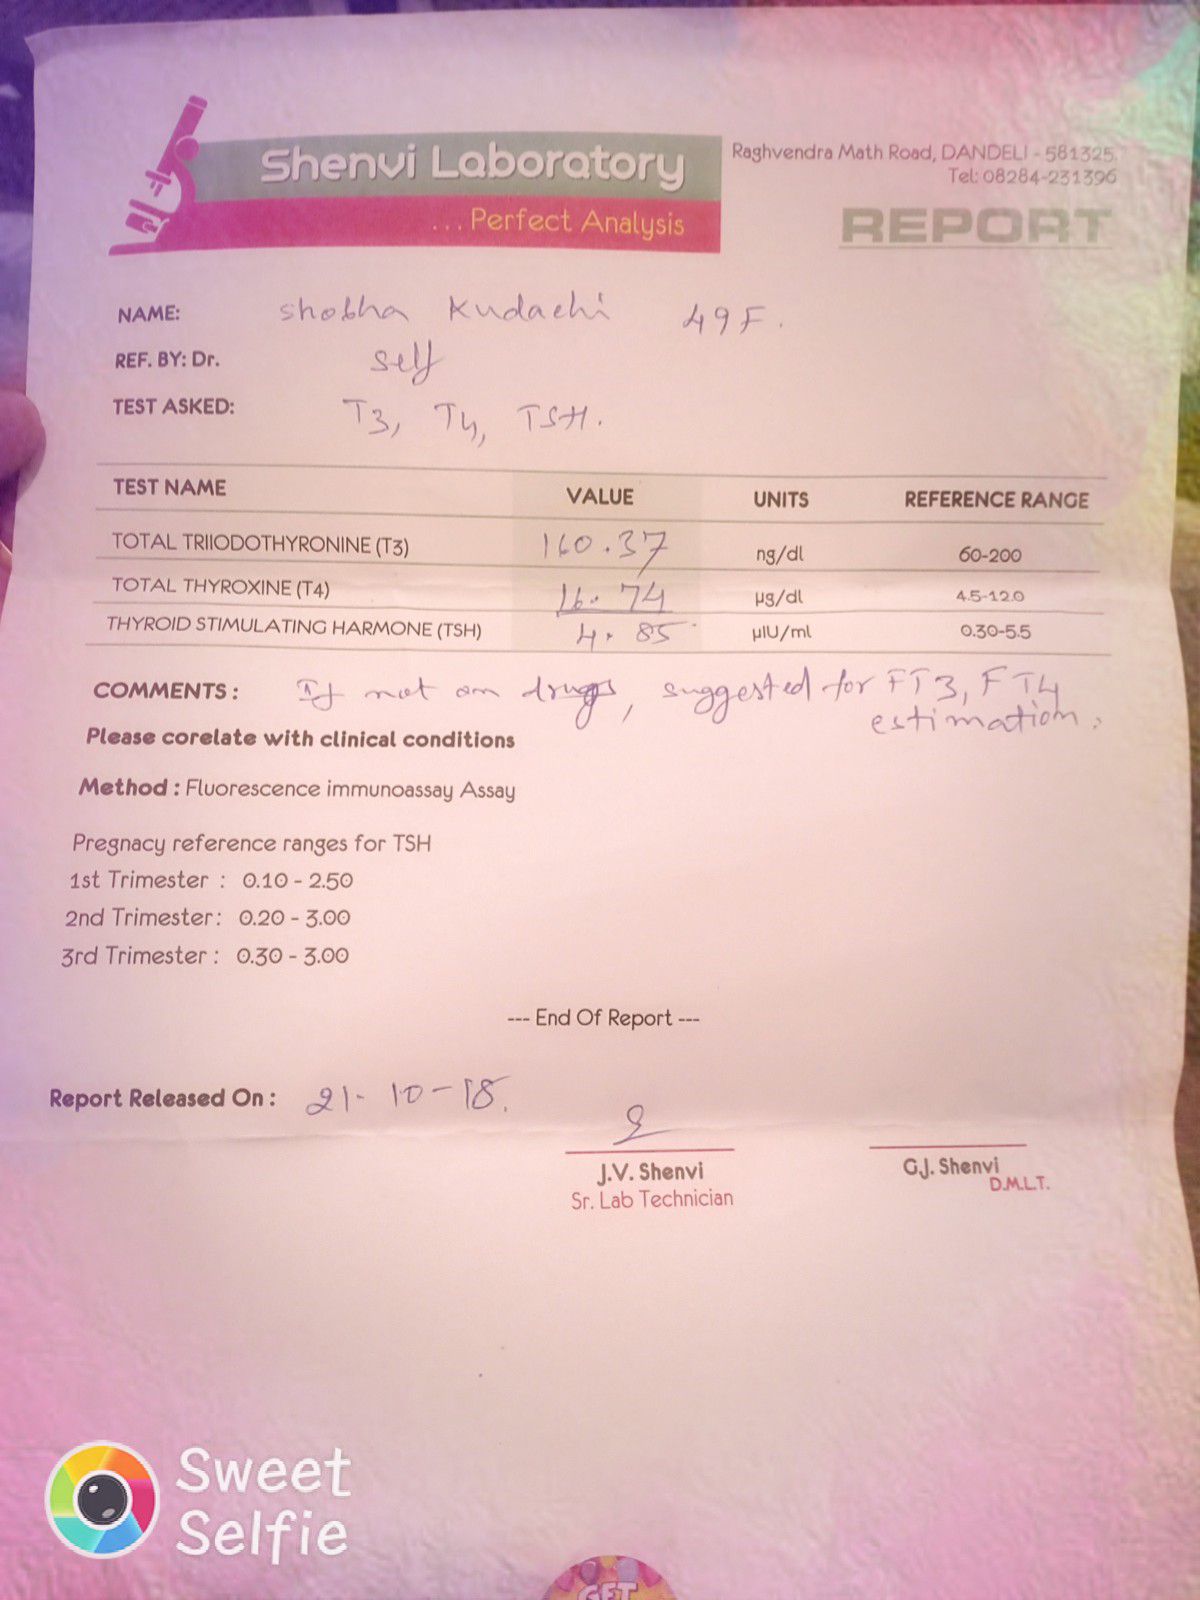 Shenvi Laboratory
... Perfect Analysis
Raghvendra Math Road, DANDELI - 581325.
Tel: 08284-231396
REPORT
NAME: Shobha Kudachi 49F.
REF. BY: Dr. Self
TEST ASKED: T3, T4, TSH.
TEST NAME VALUE UNITS REFERENCE RANGE
TOTAL TRIIODOTHYRONINE (T3) 160.37 ng/dl 60-200
TOTAL THYROXINE (T4) 16.74 µg/dl 4.5-12.0
THYROID STIMULATING HARMONE (TSH) 4.85 µIU/ml 0.30-5.5
COMMENTS : If not on drugs, suggested for FT3, FT4
estimation.
Please corelate with clinical conditions
Method : Fluorescence immunoassay Assay
Pregnacy reference ranges for TSH
1st Trimester : 0.10 - 2.50
2nd Trimester : 0.20 - 3.00
3rd Trimester : 0.30 - 3.00
--- End Of Report ---
Report Released On : 21-10-18.
J.V. Shenvi
Sr. Lab Technician
G.J. Shenvi
D.M.L.T.
Sweet
Selfie
GET